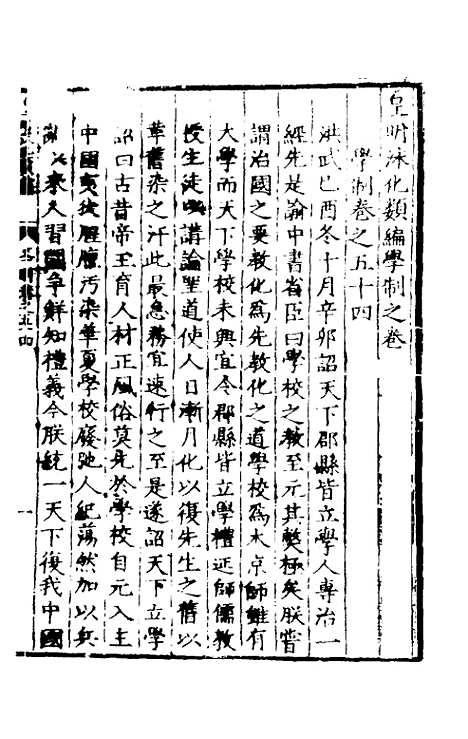 皇明泳化類編學制之卷
學制卷之五十四
洪武己酉冬十月辛卯詔天下郡縣皆立學人專治一
經先是諭中書省臣曰學校之教至元其獘極矣朕嘗
謂治國之要教化為先教化之道學校為本京師雖有
太學而天下學校未興宜令郡縣皆立學禮延師儒教
授生徒以講論聖道使人日漸月化以復先生之舊以
革舊染之汙此最急務宜速行之至是遂詔天下立學
詔曰古昔帝王育人材正風俗莫先於學校自元入主
中國夷狄腥膻污染華夏學校廢弛人紀蕩然加以兵
亂以來人習鬪爭鮮知禮義今朕統一天下復我中國
五十四
一